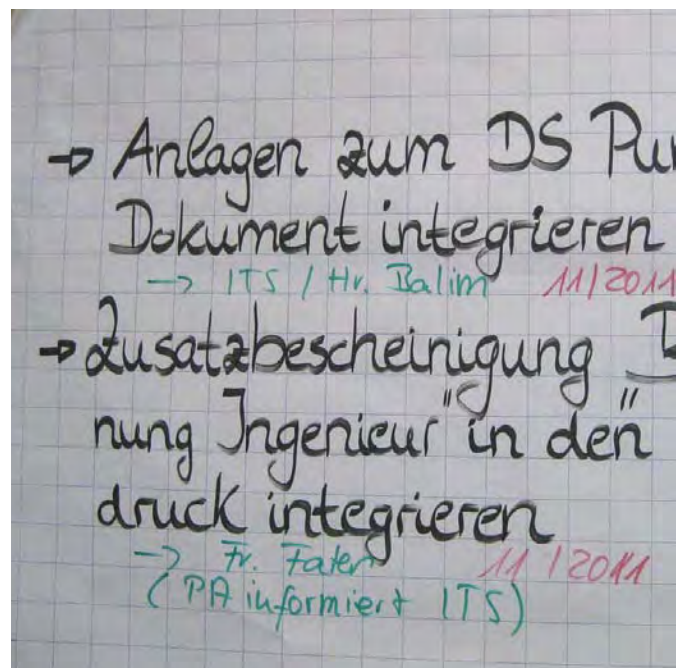 → Anlagen zum DS Pu
Dokument integrieren
→ ITS / Hr. Balim 11/2011
→ Zusatzbescheinigung B
nung Ingenieur" in den "
druck integrieren
→ Fr. Fater 11/2011
(PA informiert ITS)